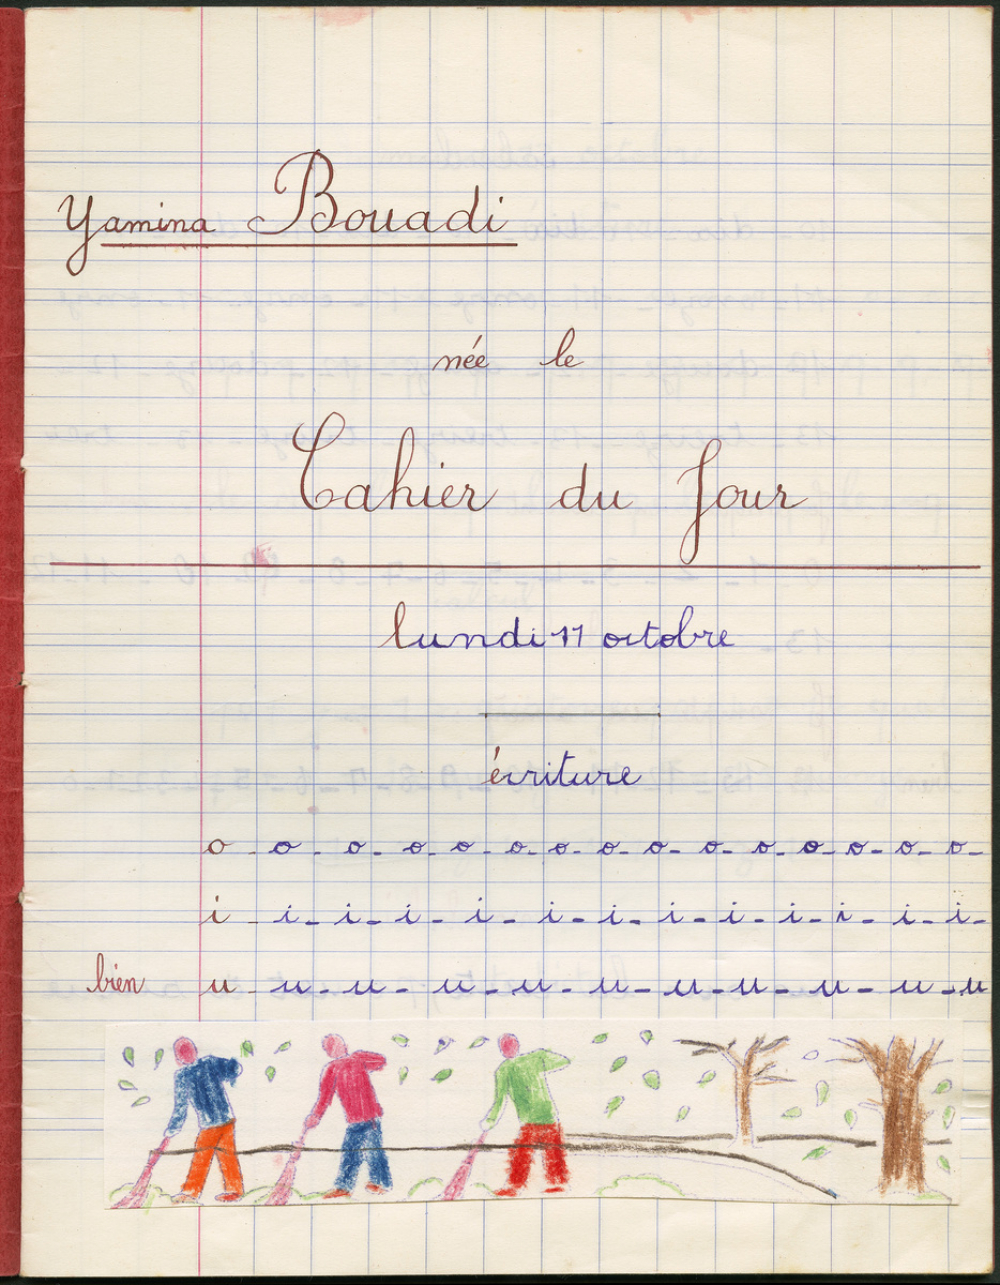 Yamina Bouadi
née le
Cahier du Jour
lundi 11 octobre
écriture
o - o - o - o - o - o - o - o - o - o - o - o - o - o - o -
i - i - i - i - i - i - i - i - i - i - i - i - i -
bien u - u - u - u - u - u - u - u - u - u - u